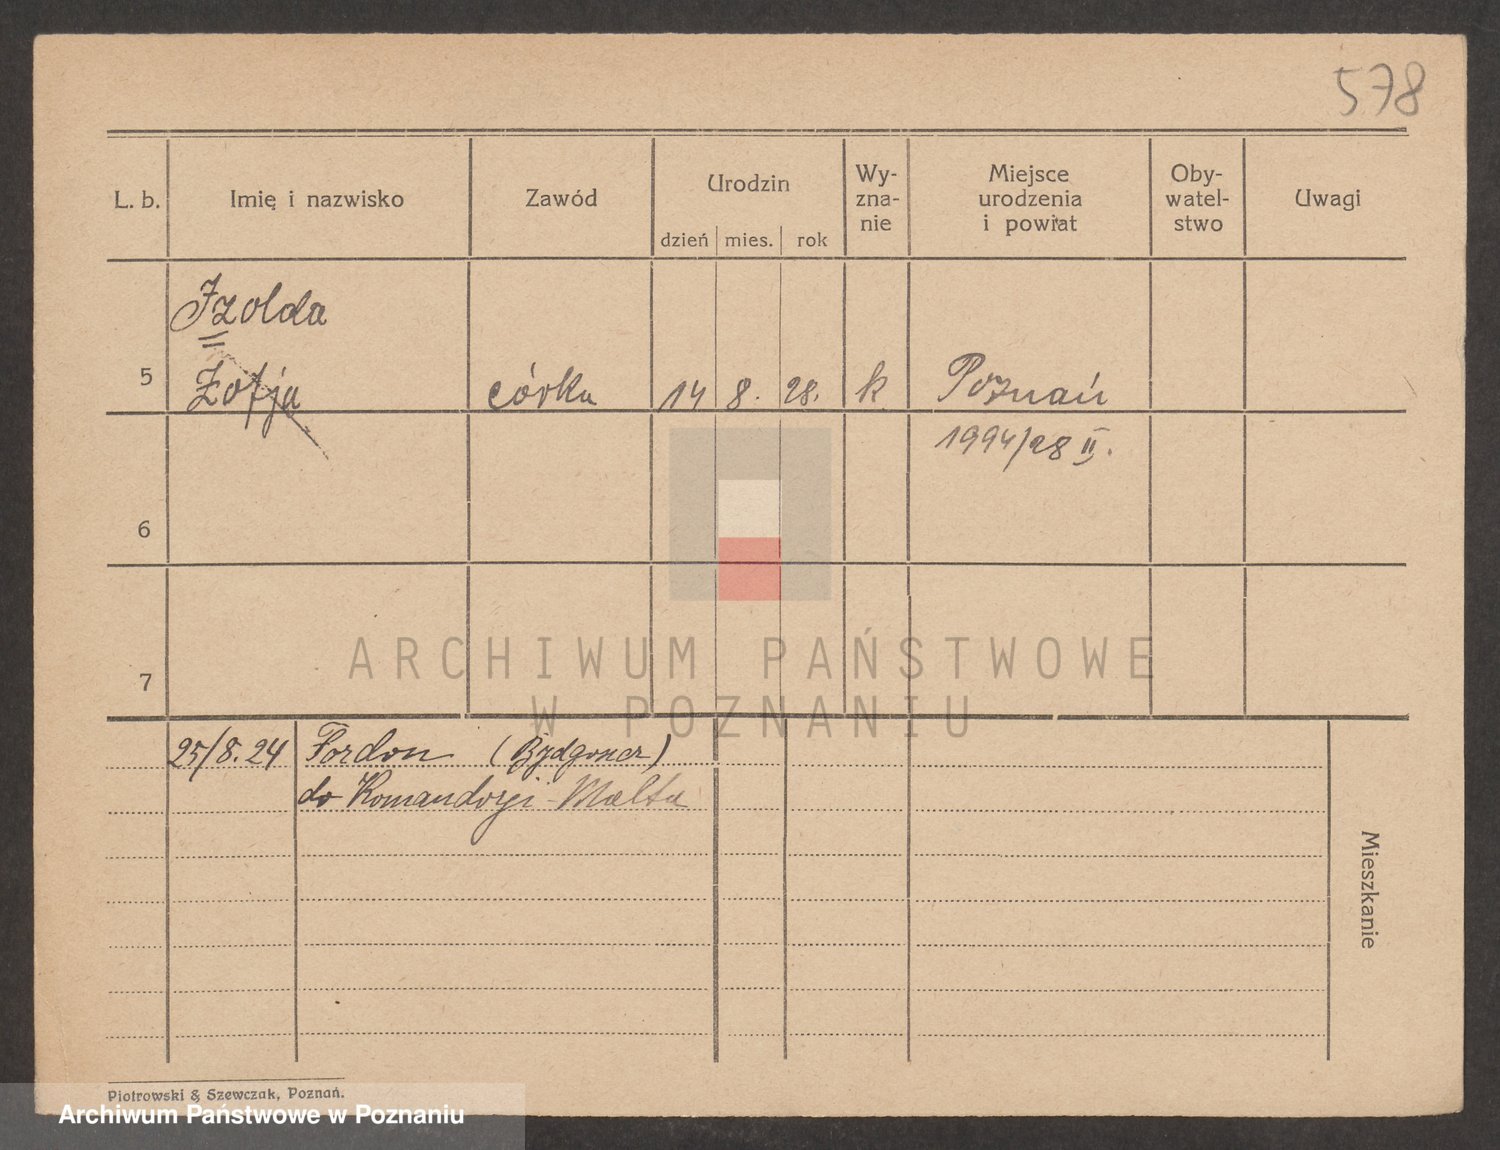 578
L. b.
Imię i nazwisko
Zawód
Urodzin
dzień mies. rok
Wy-
zna-
nie
Miejsce
urodzenia
i powiat
Oby-
watel-
stwo
Uwagi
Izolda
5 Zofja córka 14 8. 28. k Poznań
1994/28 II.
6
7
25/8. 24 Fordon (Bydgoszcz)
do Komandorji - Malta
Mieszkanie
ARCHIWUM PAŃSTWOWE
W POZNANIU
Piotrowski & Szewczak, Poznań.
Archiwum Państwowe w Poznaniu